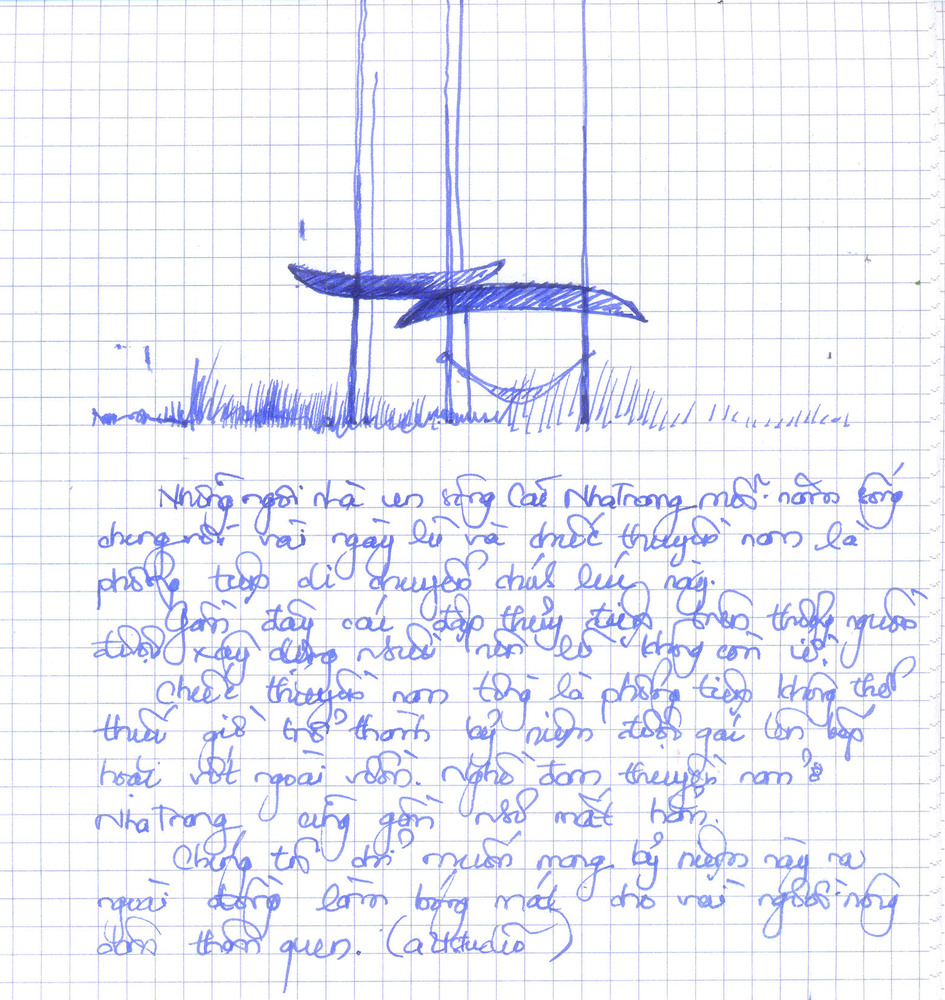 Những ngôi nhà ven sông Cái Nha Trang mỗi năm sống
chung với vài ngày lũ và chiếc thuyền nan là
phương tiện di chuyển chính lúc này.
Gần đây các đập thủy điện trên thượng nguồn
được xây dựng nhiều nên lũ không còn về.
Chiếc thuyền nan từng là phương tiện không thể
thiếu giờ trở thành kỷ niệm được gác lên bếp
hoặc vứt ngoài vườn. Nghề đan thuyền nan ở
Nha Trang cũng gần như mất hẳn.
Chúng tôi chỉ muốn mang kỷ niệm này ra
ngoài đồng làm bóng mát cho vài người nông
dân thân quen. (a21studio)